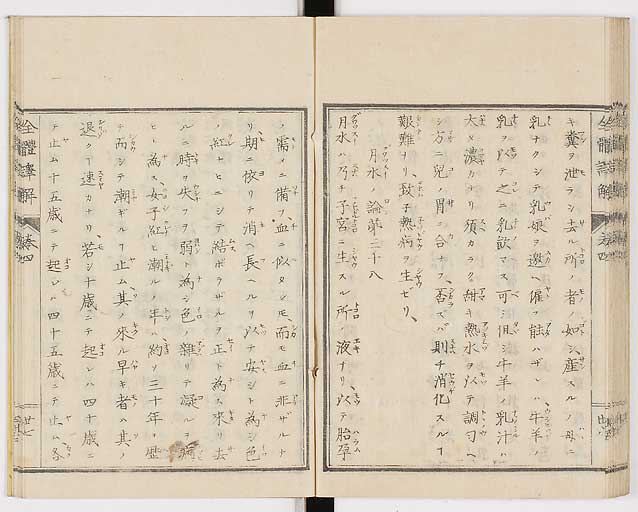 キ糞ヲ泄ラシ去ル所ノ者ノ如シ、産スルノ母ニ
乳ナクシテ乳娘ヲ邀ヘ催フ能ハザレハ牛羊ノ
乳ヲ以テ之ニ乳飲マス可シ但シ牛羊ノ乳汁ハ
大タ濃カナリ須カラク甜キ熱水ヲ以テ調勻ヘ
シ方ニ兒ノ胃ニ合ナフ、否ズバ則チ消化スルヿ
艱難ナリ、致テ熱病ヲ生ゼリ、
月水論第三十八
月水ハ乃チ子宮ニ生スル所ノ液ナリ、以テ胎孕
ノ需メニ備フ血ニ似タシ𪜈、而モ血ニ非ザルナ
リ、期ニ依リテ消ヘ長ヘルヲ以テ安シト為シ色
ノ紅ヒニシテ結ボラザルヲ正ト為ス來リ去
ルニ時ヲ失フヲ弱ト為シ色ノ雜リテ凝ルヲ病
ヒト為ス、女子紅ヒ潮ルノ年ハ約ソ三十年ヲ歷
テ而シテ潮ギルヿ止ム、其ノ來ル早キ者ハ其ノ
退クヿ速カナリ若シ十歲ニテ起レハ四十歲ニ
テ止ム十五歲ニテ起レハ四十五歲ニテ止ム、各
全體譯解
卷四
廿七